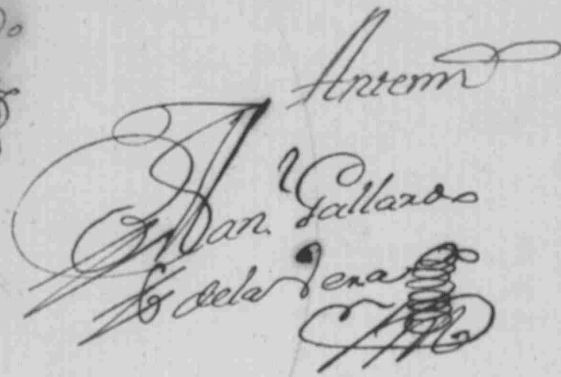 Antemí
Man. Gallardo
de la Pena